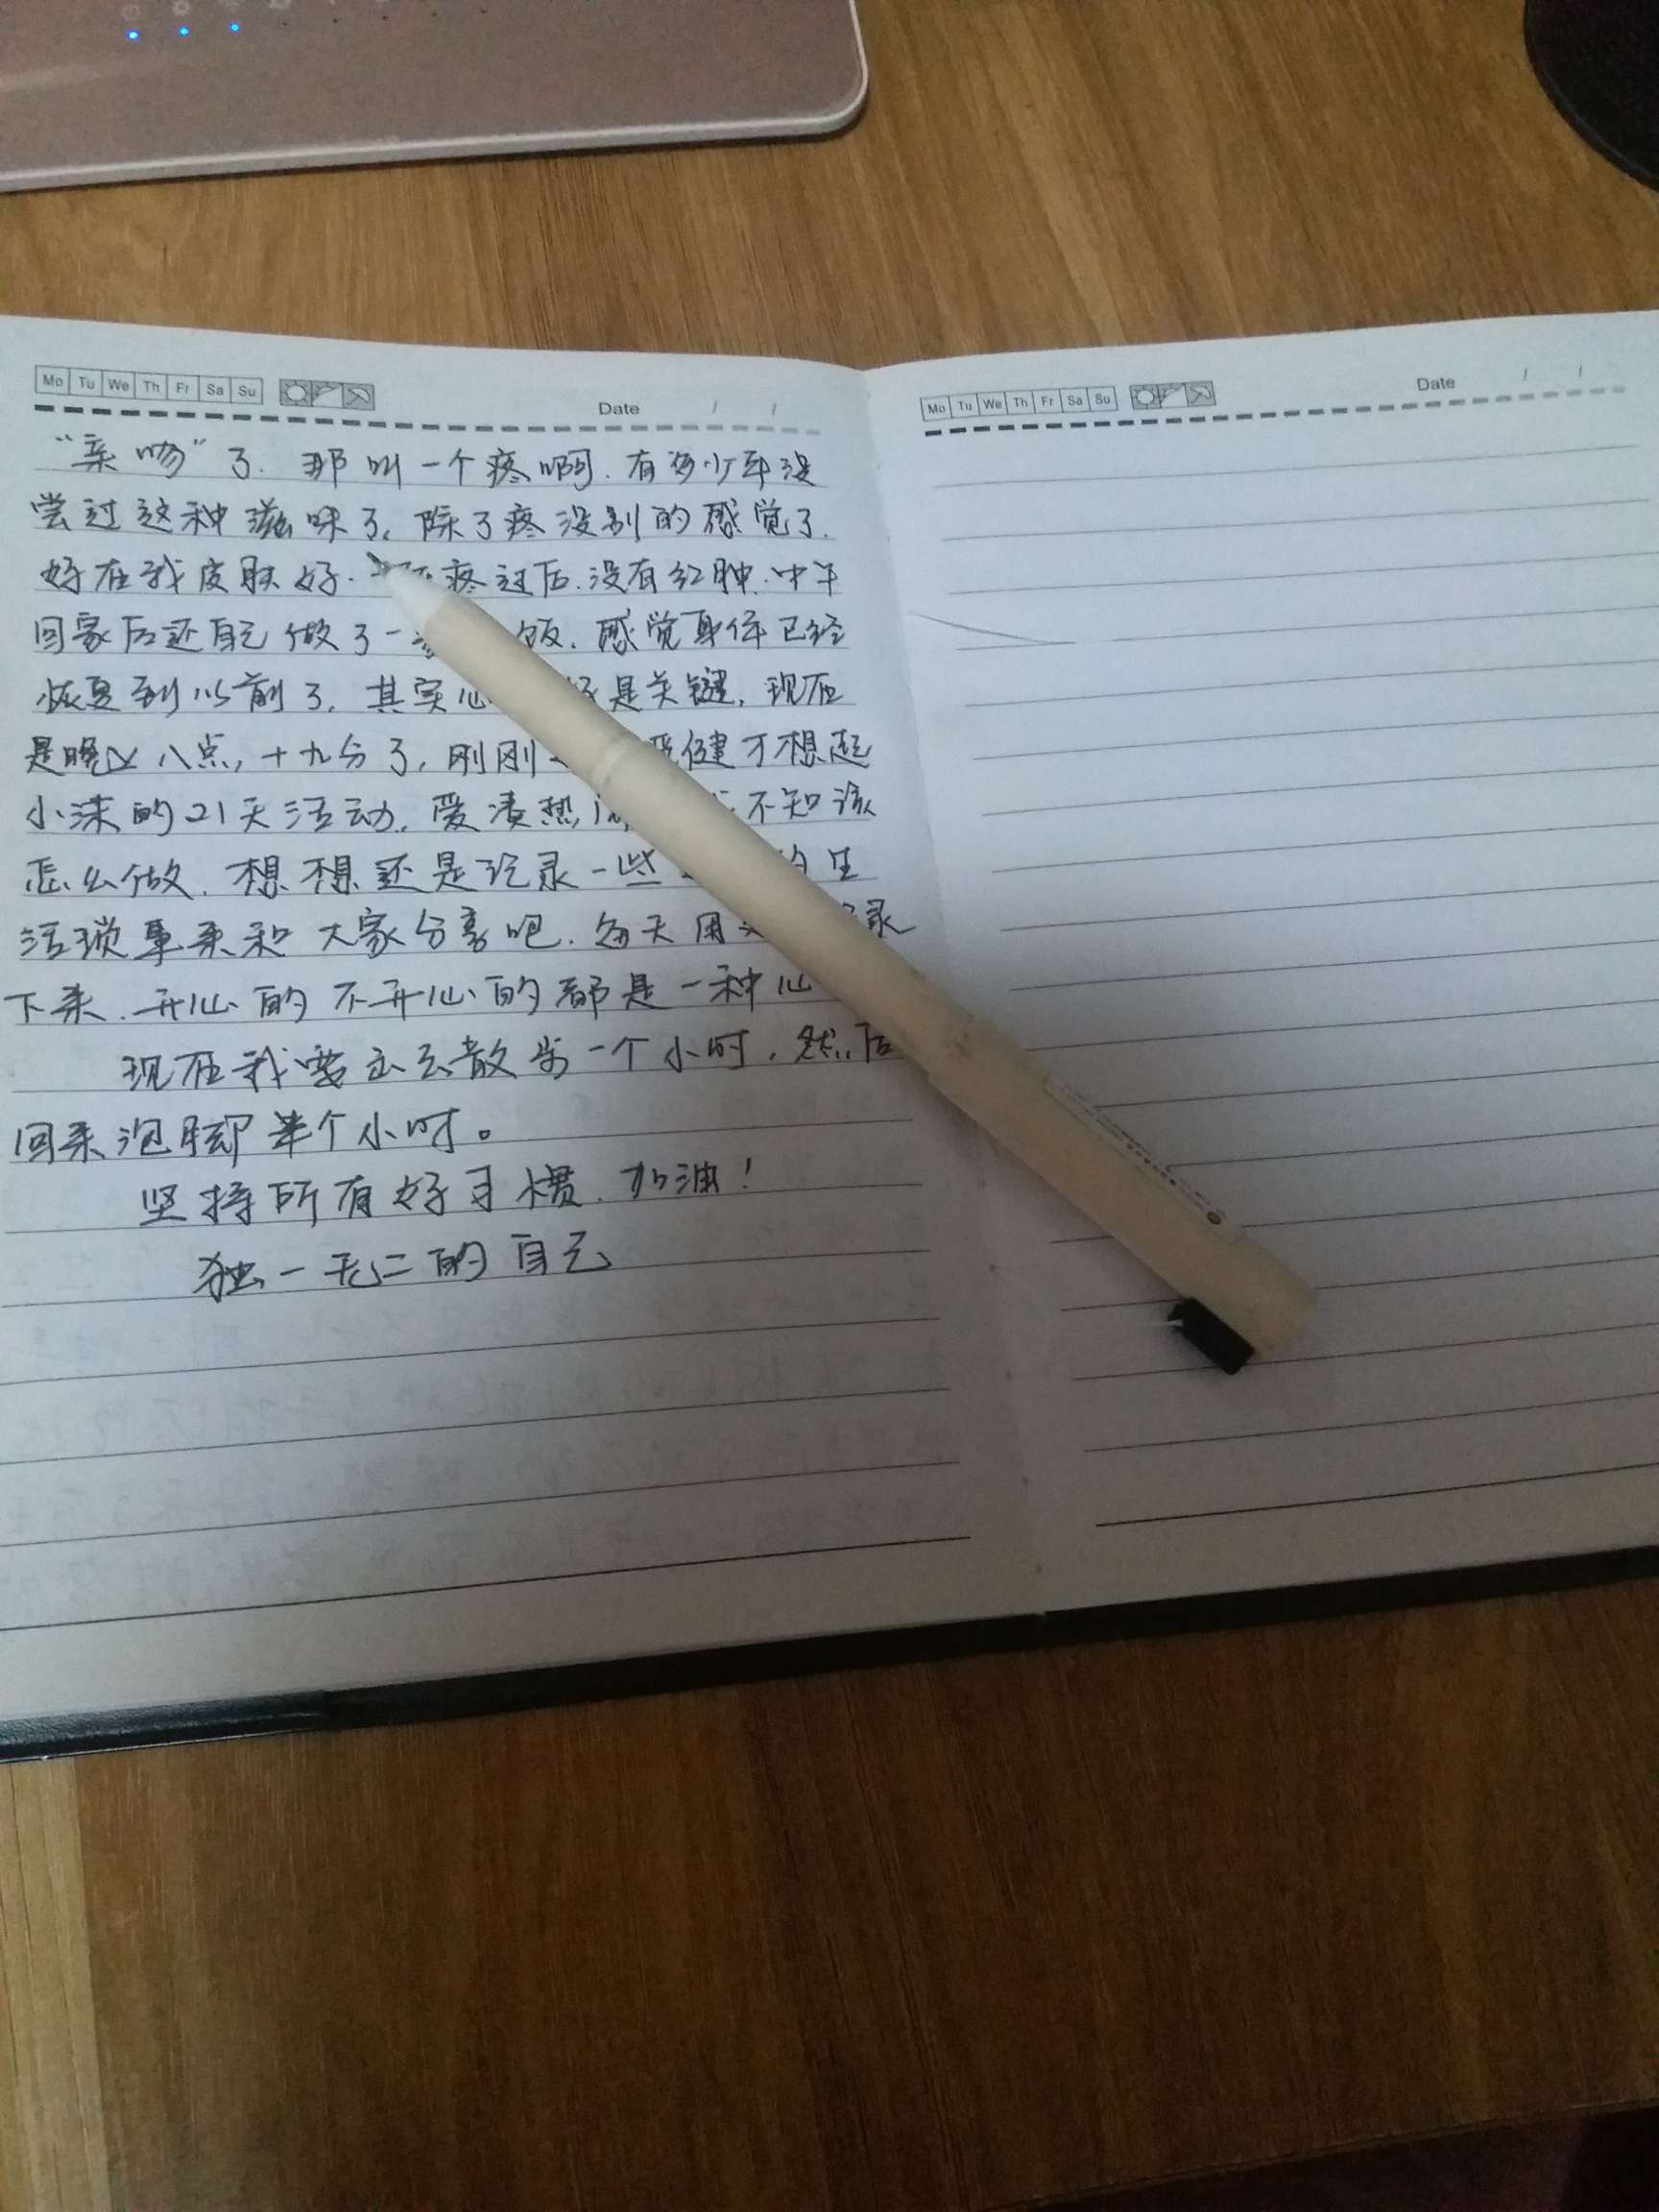 Mo Tu We Th Fr Sa Su
Date / /
“亲吻”了.那叫一个疼啊.有多少年没
尝过这种滋味了,除了疼没别的感觉了.
好在我皮肤好. 疼过后.没有红肿.中午
回家后还自己做了一 饭.感觉身体已经
恢复到以前了,其实心 是关键,现在
是晚上八点,十九分了,刚刚 健才想起
小沫的21天活动,爱凑热 不知该
怎么做.想想还是记录一些 的生
活琐事来和大家分享吧.每天用 录
下来.开心的不开心的都是一种心
现在我要出去散步一个小时.然后
回来泡脚半个小时。
坚持所有好习惯.加油!
独一无二的自己
Mo Tu We Th Fr Sa Su
Date / /